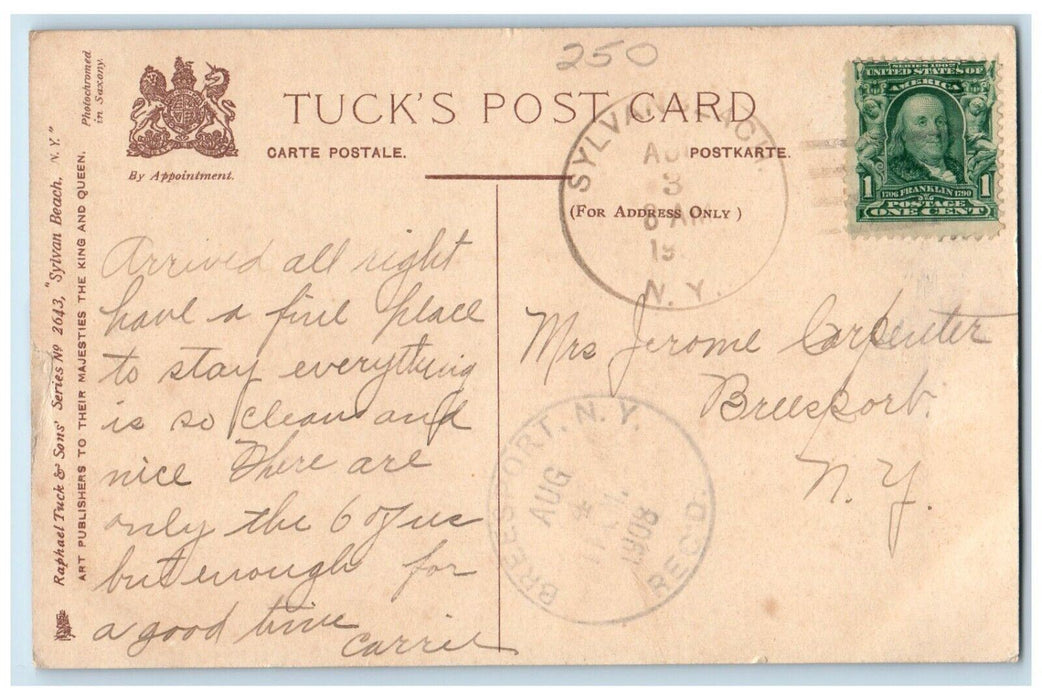 250
TUCK'S POST CARD
CARTE POSTALE.
POSTKARTE.
By Appointment.
(For Address Only)
Photochromed
in Saxony.
Raphael Tuck & Sons' Series No 2643, "Sylvan Beach, N. Y."
ART PUBLISHERS TO THEIR MAJESTIES THE KING AND QUEEN.
SYLVAN BEACH.
AUG
3
8 AM
19
N. Y.
SERIES 1902
UNITED STATES OF
AMERICA
1 1
1706 FRANKLIN 1790
POSTAGE
ONE CENT
Arrived all right
have a fine place
to stay everything
is so clean and
nice There are
only the 6 of us
but enough for
a good time
Carrie
Mrs Jerome Carpenter
Breesport.
N. Y.
BREESPORT, N. Y.
AUG
1908
REC'D.